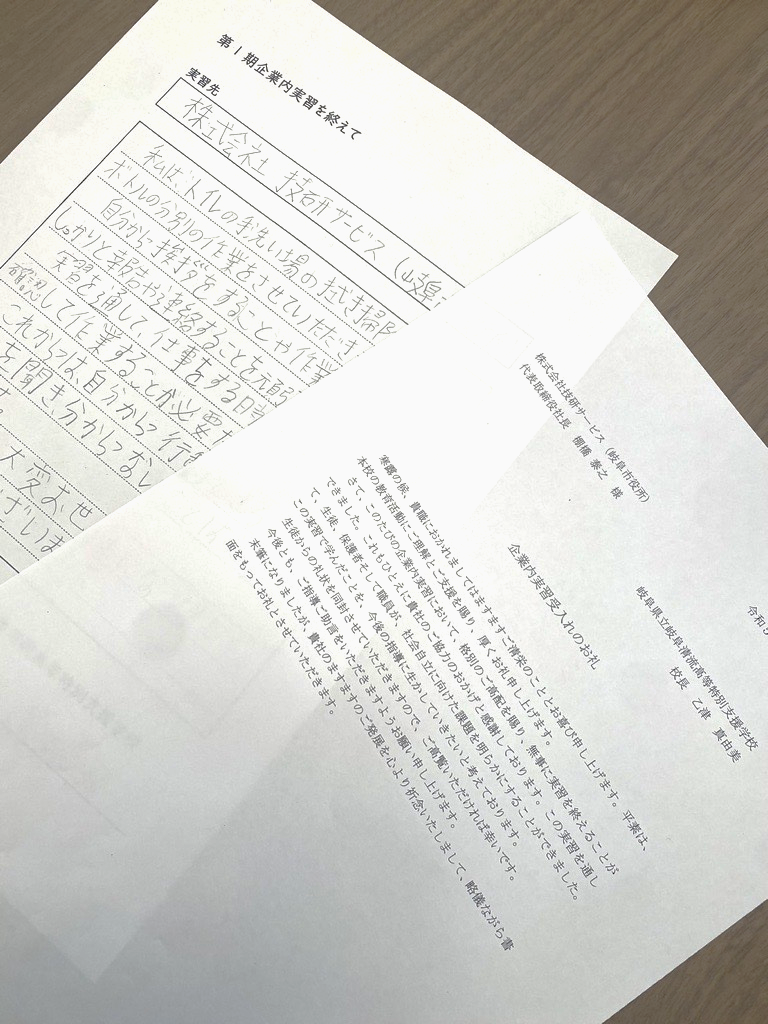 第1期企業内実習を終えて
実習先
株式会社 技研サービス(岐阜
私は、トイレの手洗い場の拭き掃
ボトルの分別の作業をさせていただき
自分から挨拶をすることや作業
しっかりと報告や連絡することを
実習を通して、仕事をする
確認して作業することが必要
これからは、自分から行
を聞き、分からない
大変お世
ざいま
令和
株式会社技研サービス(岐阜市役所)
代表取締役社長 棚橋 泰之 様
岐阜県立岐阜清流高等特別支援学校
校長 乙津 真由美
企業内実習受入れのお礼
寒露の候、貴職におかれましてはますますご清栄のこととお喜び申し上げます。平素は、
本校の教育活動にご理解とご支援を賜り、厚くお礼申し上げます。
さて、このたびの企業内実習において、格別のご高配を賜り、無事に実習を終えることが
できました。これもひとえに貴社のご協力のおかげと感謝しております。この実習を通し
て、生徒、保護者そして職員が、社会自立に向けた課題を明らかにすることができました。
この実習で学んだことを、今後の指導に生かしていきたいと考えております。
生徒からの礼状を同封させていただきますので、ご高覧いただければ幸いです。
今後とも、ご指導ご助言をいただきますようお願い申し上げます。
末筆になりましたが、貴社のますますのご発展を心より祈念いたしまして、略儀ながら書
面をもってお礼とさせていただきます。